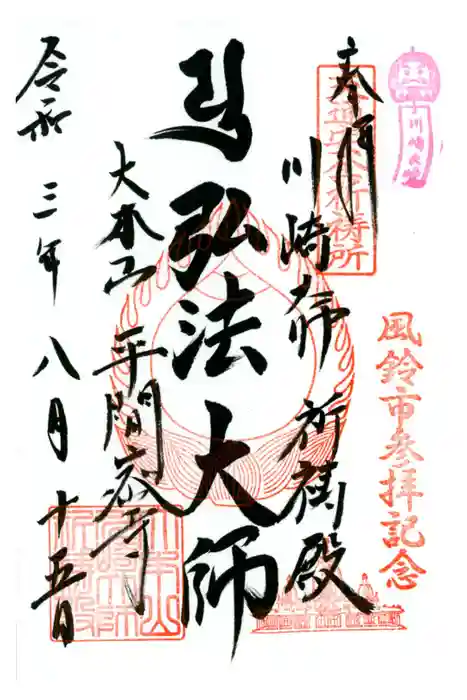 奉拝
川崎大師 祈祷殿
弘法大師
大本山 平間寺
令和 三年 八月 十五日
交通安全祈祷所
風鈴市参拝記念
川崎大師